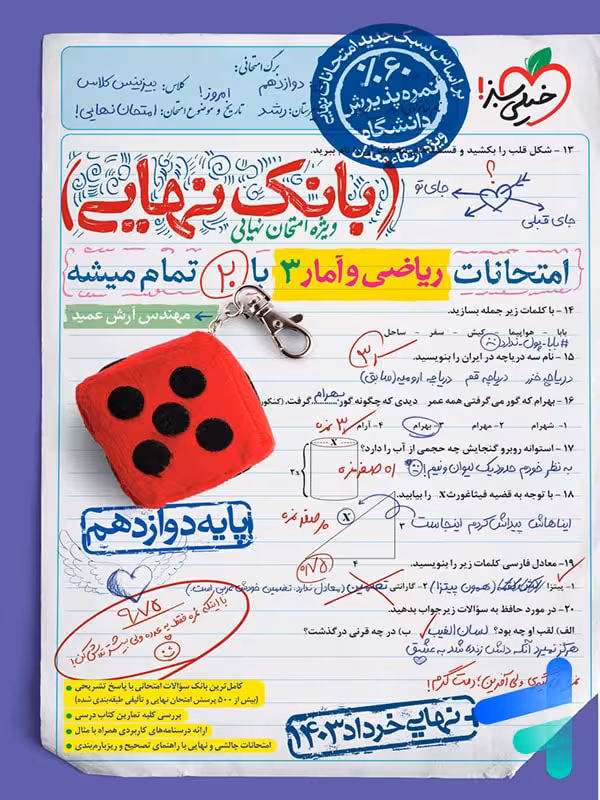 برگ امتحانی:
دوازدهم
کلاس: بیزینس کلاس
امروز!
رشد
تاریخ و موضوع امتحان: امتحان نهایی!
بر اساس سبک جدید امتحانات نهایی
٪۶۰
نمره پذیرش
دانشگاه
ویژه ارتقاء معدل
خیلی سبز!
۱۳ - شکل قلب را بکشید و
نام ببرید.
؟
جای تو
جای قبلی
(بانک نهایی)
ویژه امتحان نهایی
امتحانات ریاضی و آمار ۳ با ۲۰ تمام میشه
مهندس آرش عمید
۱۴ - با کلمات زیر جمله بسازید.
بابا - هواپیما - کیش - سفر - ساحل
#بابا-پول-ندارد
۱۵ - نام سه دریاچه در ایران را بنویسید.
دریاچه خزر دریاچه قم دریاچه ارومیه (سابق)
۱۶ - بهرام که گور می‌گرفتی همه عمر دیدی که چگونه گور بهرام گرفت.
۱- شهرام ۲- مهرام ۳- بهرام ۴- آرام
۱۷ - استوانه روبرو گنجایش چه حجمی از آب را دارد؟
به نظر خودم حدود یک لیوان و نیم!
X
۲x
۱۸ - با توجه به قضیه فیثاغورث X را بیابید.
ایناهاش پیداش کردم اینجاست
X
۳
۴
پایه دوازدهم
۱۹ - معادل فارسی کلمات زیر را بنویسید.
۱- پیتزا
(همون پیتزا)
۲- گارانتی تضمین (معادل ندارد. تضمین خودش عربی است.)
۲۰ - در مورد حافظ به سؤالات زیر جواب بدهید.
الف) لقب او چه بود؟ لسان الغیب ب) در چه قرنی درگذشت؟
هرگز نمیرد آنکه دلش زنده شد به عشق
۹/۷۵
با اینکه نمره فقط یه عدده ولی بیشتر تلاش کن!
ولی آفرین؛ دمت گرم!
کامل‌ترین بانک سؤالات امتحانی با پاسخ تشریحی
(بیش از ۵۰۰ پرسش امتحان نهایی و تألیفی طبقه‌بندی شده)
بررسی کلیه تمارین کتاب درسی
ارائه درسنامه‌های کاربردی همراه با مثال
امتحانات چالشی و نهایی با راهنمای تصحیح و ریزبارم‌بندی
+ نهایی خرداد ۱۴۰۳